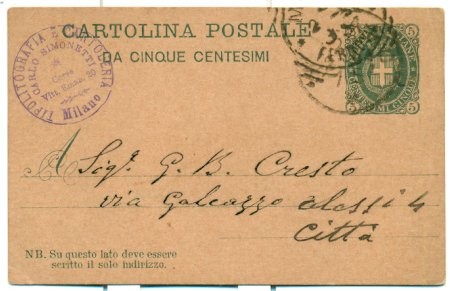 CARTOLINA POSTALE
DA CINQUE CENTESIMI
TIPOLITOGRAFIA E CARTOLERIA
CARLO SIMONETTI
Corso
Vitt. Eman. 20
Milano
5
5
5
A Sig. G. B. Cresto
via Galeazzo Alessi 4
Città
NB. Su questo lato deve essere
scritto il solo indirizzo.